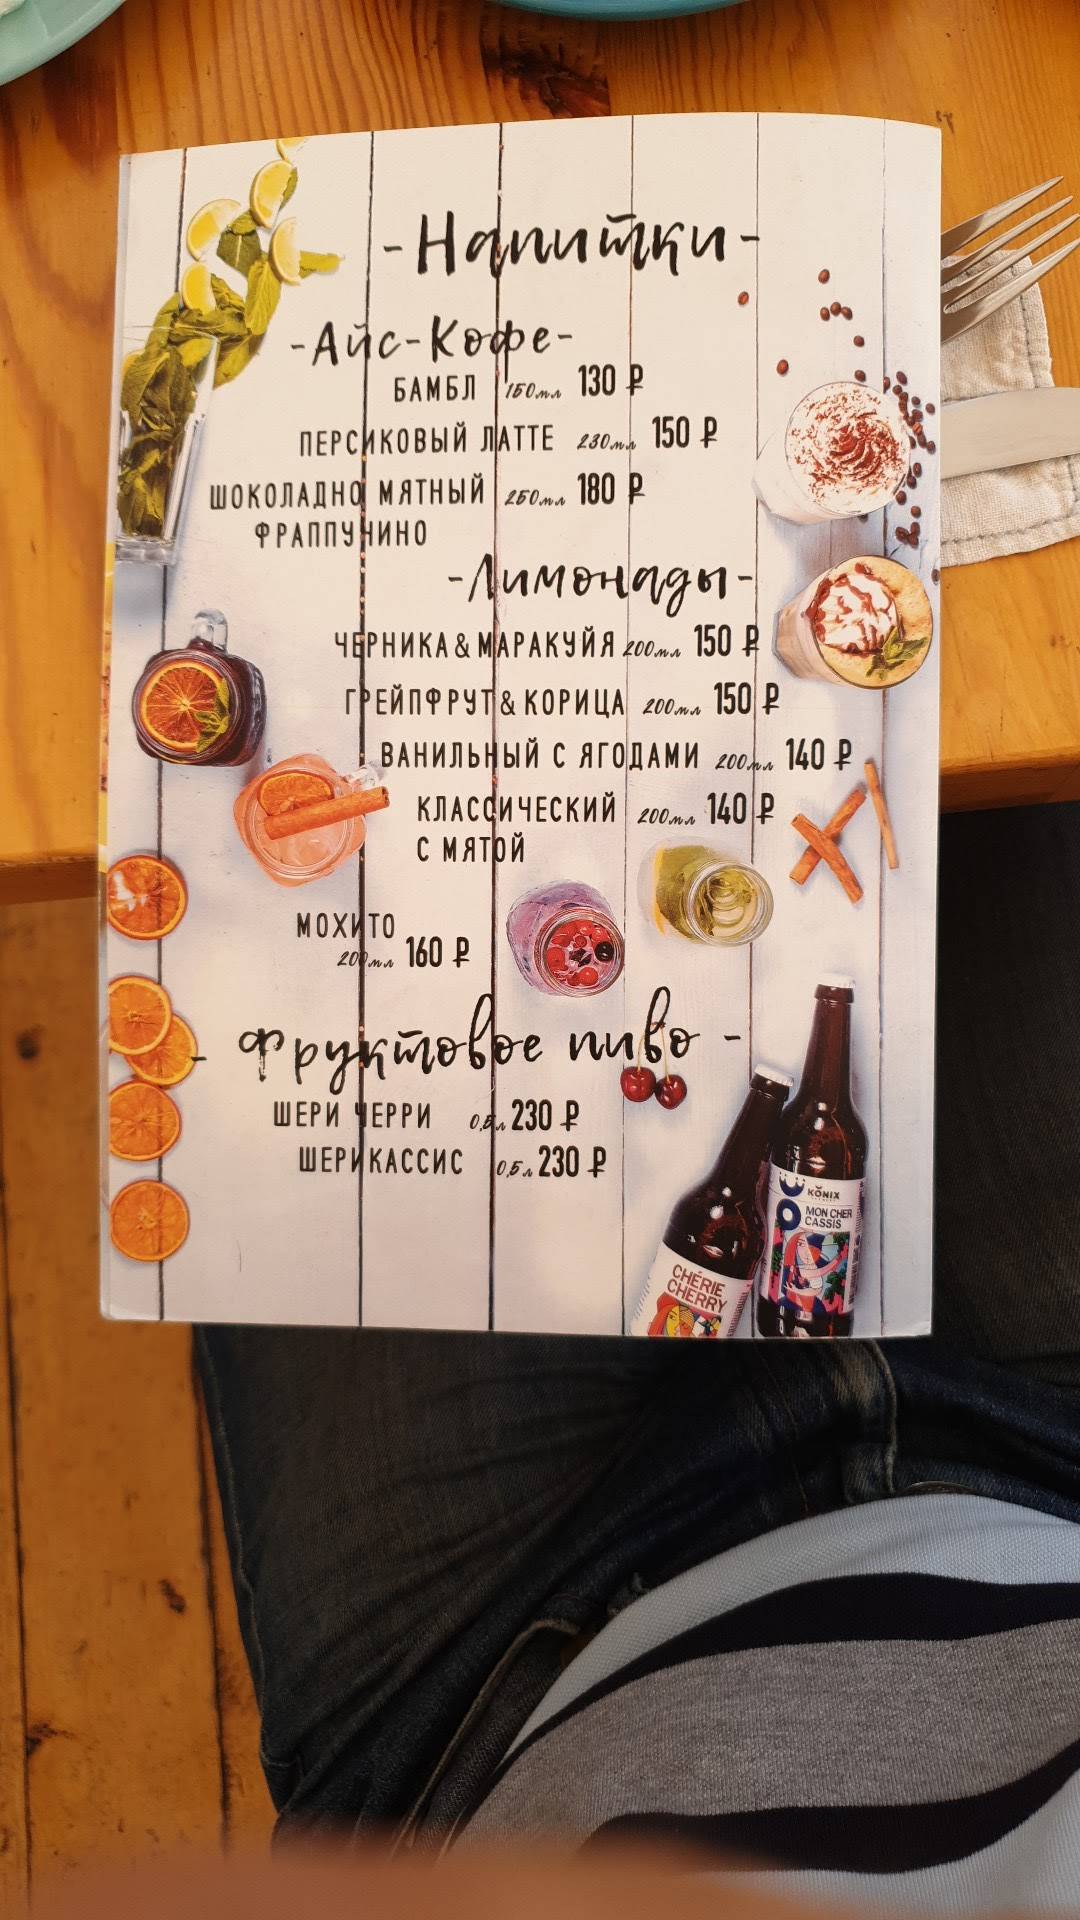 -Напитки-
-Айс-Кофе-
БАМБЛ 150мл 130 ₽
ПЕРСИКОВЫЙ ЛАТТЕ 230мл 150 ₽
ШОКОЛАДНО МЯТНЫЙ 250мл 180 ₽
ФРАППУЧИНО
-Лимонады-
ЧЕРНИКА & МАРАКУЙЯ 200мл 150 ₽
ГРЕЙПФРУТ & КОРИЦА 200мл 150 ₽
ВАНИЛЬНЫЙ С ЯГОДАМИ 200мл 140 ₽
КЛАССИЧЕСКИЙ 200мл 140 ₽
С МЯТОЙ
МОХИТО
200мл 160 ₽
- Фруктовое пиво -
ШЕРИ ЧЕРРИ 0,5л 230 ₽
ШЕРИКАССИС 0,5л 230 ₽
KONIX
MON CHER
CASSIS
CHÉRIE
CHERRY